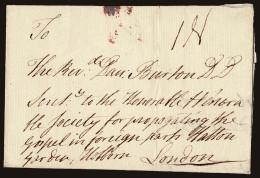 To
1N
The Rev.d Dan. Burton D.D
Secr.y to the Honorable & Honora
ble Society for propagating the
Gospel in foreign parts Hatton
Garden, Holborn London